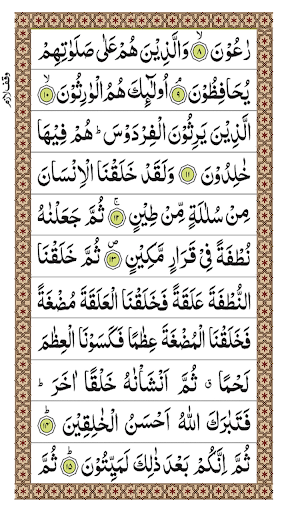 رٰعُوْنَ ۙ﴿۸﴾ وَالَّذِيْنَ هُمْ عَلٰى صَلَوٰتِهِمْ
يُحَافِظُوْنَ ۘ﴿۹﴾ اُولٰٓئِكَ هُمُ الْوٰرِثُوْنَ ۙ﴿۱۰﴾
الَّذِيْنَ يَرِثُوْنَ الْفِرْدَوْسَ ؕ هُمْ فِيْهَا
خٰلِدُوْنَ ﴿۱۱﴾ وَلَقَدْ خَلَقْنَا الْاِنْسَانَ
مِنْ سُلٰلَةٍ مِّنْ طِيْنٍ ۚ﴿۱۲﴾ ثُمَّ جَعَلْنٰهُ
نُطْفَةً فِيْ قَرَارٍ مَّكِيْنٍ ۪﴿۱۳﴾ ثُمَّ خَلَقْنَا
النُّطْفَةَ عَلَقَةً فَخَلَقْنَا الْعَلَقَةَ مُضْغَةً
فَخَلَقْنَا الْمُضْغَةَ عِظٰمًا فَكَسَوْنَا الْعِظٰمَ
لَحْمًا ۗ ثُمَّ اَنْشَاْنٰهُ خَلْقًا اٰخَرَ ؕ
فَتَبٰرَكَ اللّٰهُ اَحْسَنُ الْخٰلِقِيْنَ ؕ﴿۱۴﴾
ثُمَّ اِنَّكُمْ بَعْدَ ذٰلِكَ لَمَيِّتُوْنَ ؕ﴿۱۵﴾ ثُمَّ
وقف لازم